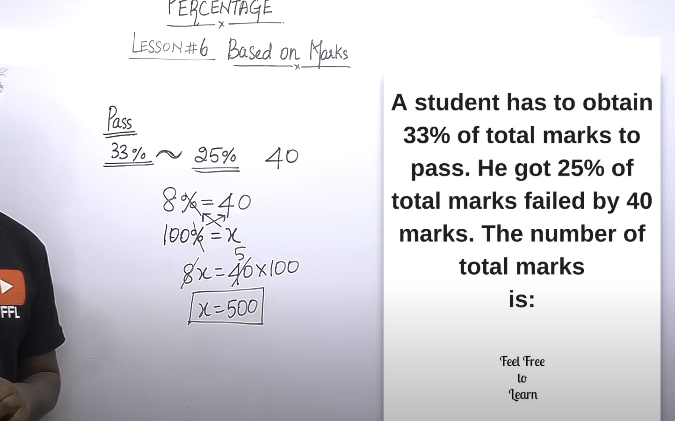 PERCENTAGE
LESSON#6 Based on Marks
Pass
33% ~ 25% 40
8% = 40
100% = x
5
8x = 40x100
x = 500
FFL
A student has to obtain
33% of total marks to
pass. He got 25% of
total marks failed by 40
marks. The number of
total marks
is:
Feel Free
to
Learn